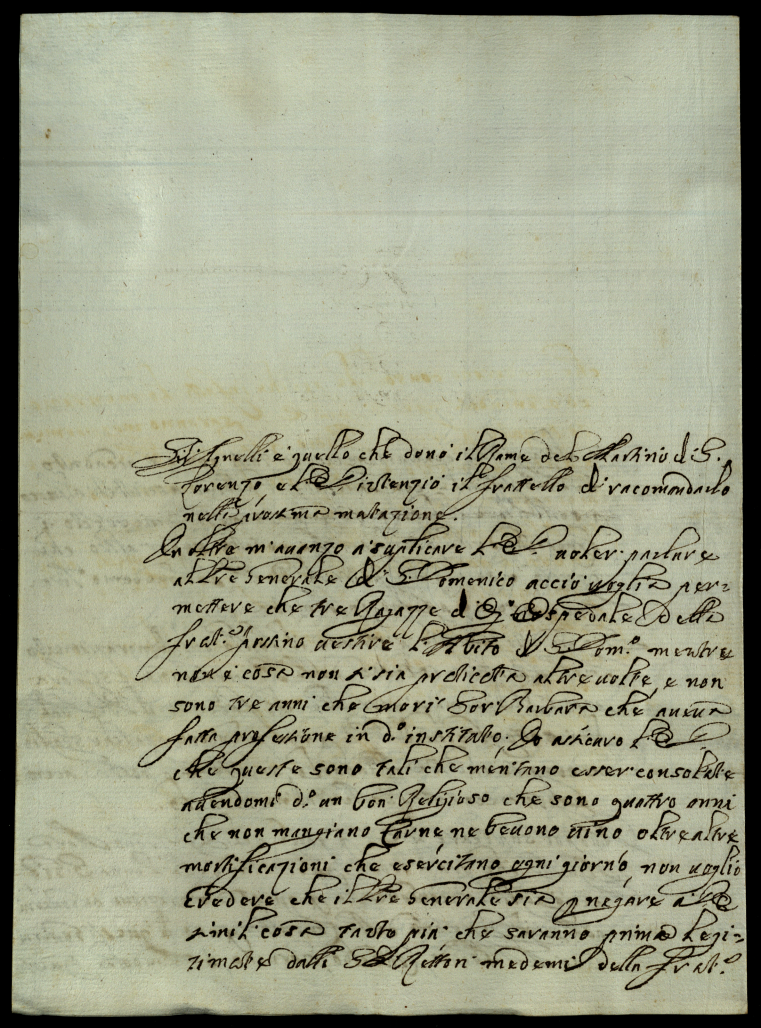 quello che donò il Rame del Martirio di S.
Lorenzo e il fratello di racomandarlo
nella mutazione.
In oltre m'auanzo a suplicare V.E. uoler parlare
al Pre Generale di S. Domenico acciò uoglia per=
mettere che tre Ragazze di Ospedale della
Frat.a possino uestire l'Abito di S. Dom.o mentre
non è cosa non si sia praticata altre uolte, e non
sono tre anni che morì Sor Barbara che aueua
fatta professione in d.o instituto. Io assicuro V.E.
che queste sono tali che meritano esser consolate
auendomi d.o un bon Religioso che sono quattro anni
che non mangiano Carne ne beuono uino oltre altre
mortificazioni che esercitano ogni giorno non uoglio
Credere che il Pre Generale sia p negare a V.E.
simil cosa tanto più che saranno prima legi=
timate dalli SS.ri Rettori medemi della Frat.a